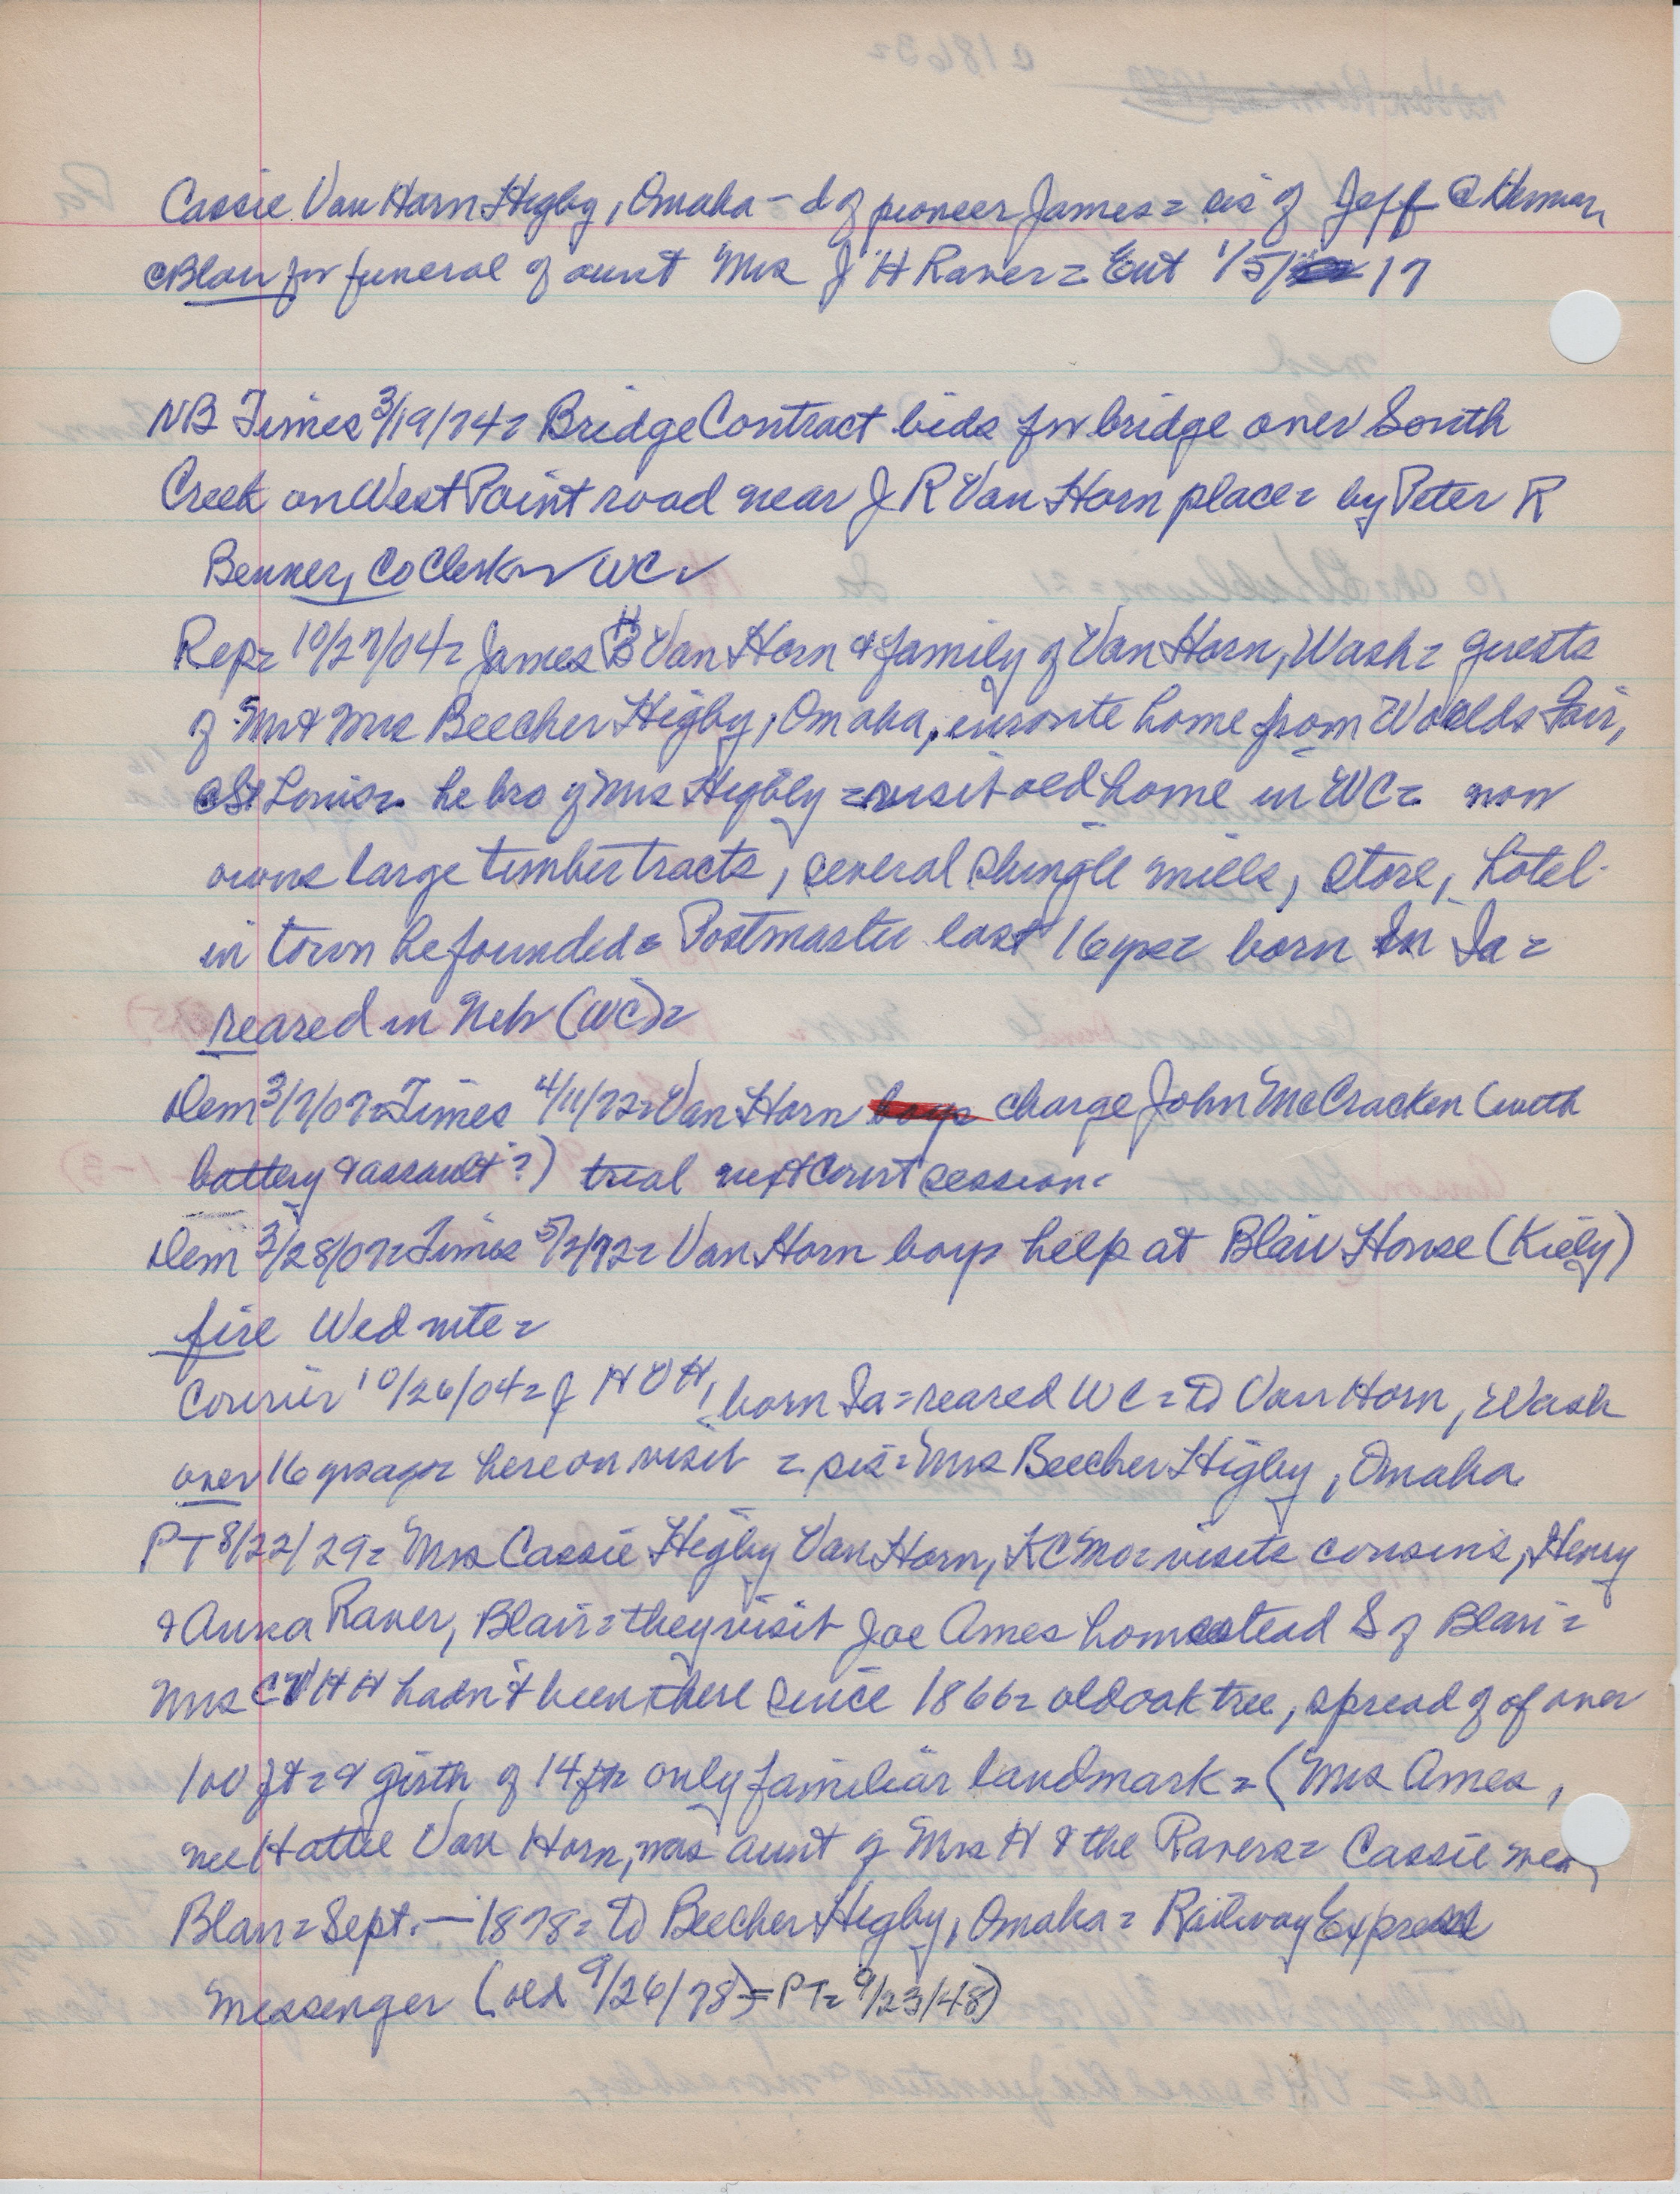 Cassie Van Horn Higby, Omaha - d of pioneer James = sis of Jeff @ Herman,
@ Blair for funeral of aunt Mrs J H Raver = Ent 1/5/17
NB Times 3/19/74 = Bridge Contract bids for bridge over South
Creek on West Point road near J R Van Horn place = by Peter R
Benner, Co Clerk WC
Rep = 10/27/04 = James H Van Horn & family of Van Horn, Wash = guests
of Mr & Mrs Beecher Higby, Omaha, enroute home from Worlds Fair,
@ St Louis = he bro of Mrs Higby = visit old home in WC = now
owns large timber tracts, several shingle mills, store, hotel
in town he founded = Postmaster last 16 yrs = born in Ia =
reared in Neb (WC) =
Dem 3/7/07 = Times 4/11/72 = Van Horn boys charge John McCracken (with
battery & assault?) trial next court session.
Dem 3/28/07 = Times 5/2/72 = Van Horn boys help at Blair House (Kiely)
fire Wed nite =
Courier 10/26/04 = J H V H, born Ia = reared WC = to Van Horn, Wash
over 16 yrs ago = here on visit = sis = Mrs Beecher Higby, Omaha
PT 8/22/29 = Mrs Cassie Higby Van Horn, KC Mo = visits cousins, Henry
& Anna Raver, Blair = they visit Joe Ames homestead S of Blair =
Mrs C V H H hadn't been there since 1866 = old oak tree, spread of of over
100 ft = & girth of 14 ft = only familiar landmark = (Mrs Ames,
nee Hattie Van Horn, was aunt of Mrs H & the Ravers = Cassie
Blair = Sept. — 1878 = to Beecher Higby, Omaha = Railway Express
Messenger (old 9/26/78) = PT = 9/23/48)